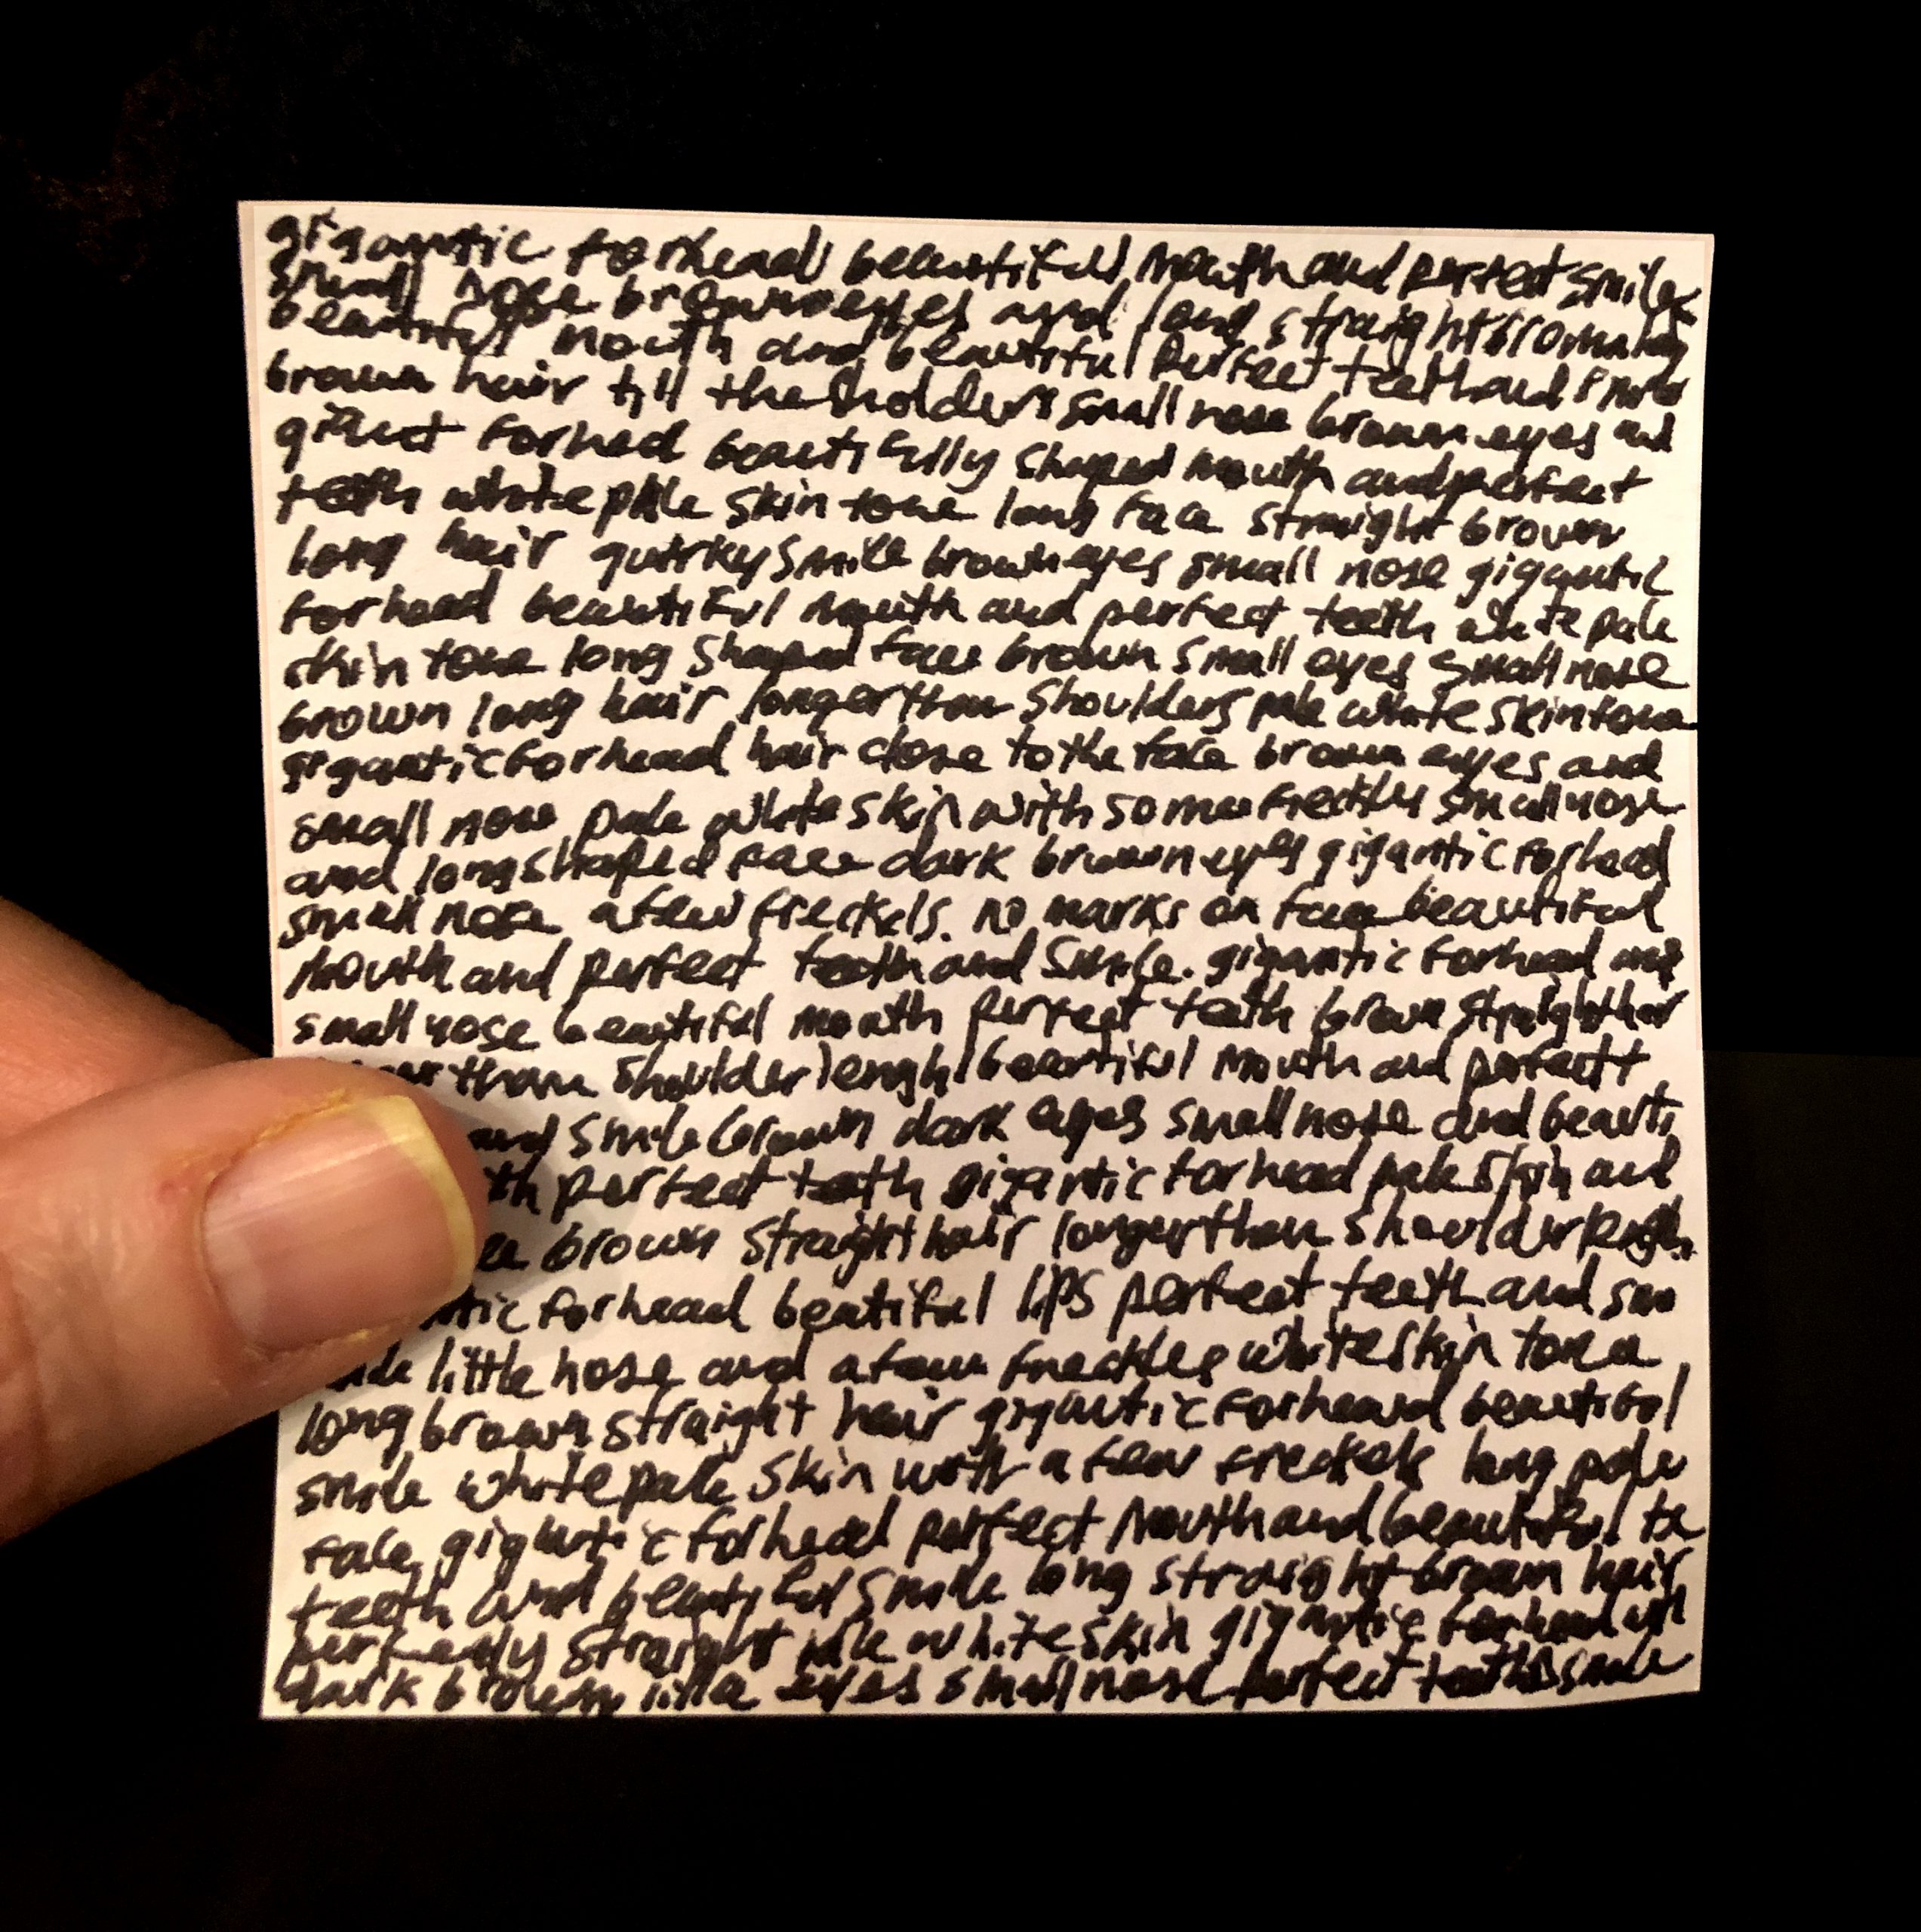 gigantic forhead beautiful mouth and perfect smile
small nose brown eyes and long straight brown
beautiful mouth and beautiful perfect teeth and
brown hair till the sholders small nose brown eyes and
giant forhed beautifully shaped mouth and perfect
teeth white pale skin tone long face straight brown
long hair quirky smile brown eyes small nose gigantic
forhead beautiful mouth and perfect teeth white pale
skin tone long shaped face brown small eyes small nose
brown long hair longer than shoulders pale white skin tone
gigantic forhead hair close to the face brown eyes and
small nose pale white skin with some freckles small nose
and long shaped face dark brown eyes gigantic forhead
small nose a few freckels. no marks on face beautiful
mouth and perfect teeth and smile. gigantic forhead and
small nose beautiful mouth perfect teeth brown straight hair
than shoulder lengh beautiful mouth and perfect
and smile brown dark eyes small nose and beauti
th perfect teeth gigantic forhead pale skin and
brown straight hair longer than shoulder
tic forhead beatiful lips perfect teeth and
little nose and a few freckles white skin tone
long brown straight hair gigantic forhead beautiful
smile white pale skin with a few freckels long pale
face gigantic forhead perfect mouth and beautiful te
teeth and beautiful smile long straight brown hair
perfectly straight pale white skin gigantic forhead
dark brown eyes small nose perfect teeth smile